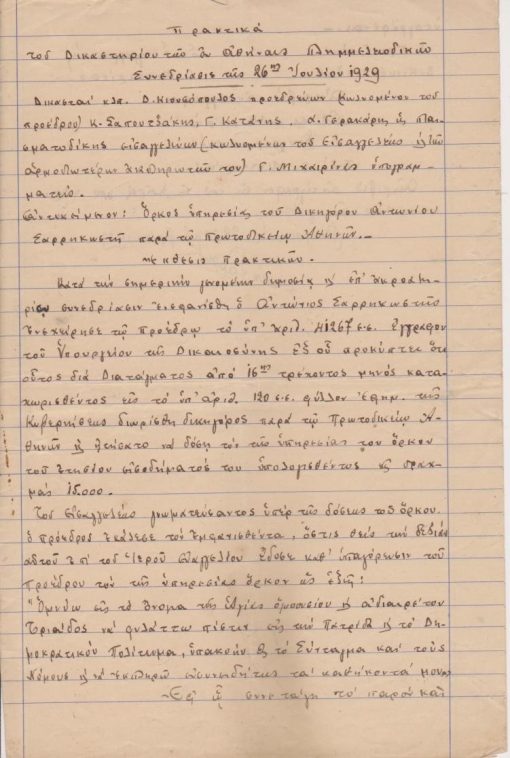 Πρακτικά
τοῦ Δικαστηρίου τῶν ἐν Ἀθήναις Πλημμελειοδικῶν
Συνεδρίασις τῆς 26ης Ἰουλίου 1929
Δικασταί κλπ. Δ. Κιουσόπουλος προεδρεύων (κωλυομένου τοῦ
προέδρου) Κ. Σαπουτζάκης, Γ. Κατάνης. Α. Γερακάρης ὡς
εἰσαγγελεύων (κωλυομένου τοῦ Εἰσαγγελέως
ἀρμοδιωτέρων ἀναπληρωτῶν του) Γ. Μιχαιρίνας ὑπογραμ-
ματεύς.
Ἀντικείμενον: Ὅρκος ὑπηρεσίας τοῦ Δικηγόρου Ἀντωνίου
Σαρρηκωστῆ παρά τῷ Πρωτοδικείῳ Ἀθηνῶν.—
Ἔκθεσις Πρακτικῶν.
Κατά τήν σημερινήν γενομένην δημοσίᾳ ἐπ' ἀκροατη-
ρίου συνεδρίασιν ἐνεφανίσθη ὁ Ἀντώνιος Σαρρηκωστῆς
ἐνεχείρησε τῷ προέδρῳ τό ὑπ' ἀριθ. 41267 ἐ.ἔ. ἔγγραφον
τοῦ Ὑπουργείου τῆς Δικαιοσύνης ἐξ οὗ προκύπτει ὅτι
οὗτος διά Διατάγματος ἀπό 16ης τρέχοντος μηνός κατα-
χωρισθέντος εἰς τό ὑπ' ἀριθ. 120 ἐ.ἔ. φύλλον ἐφημ. τῆς
Κυβερνήσεως διωρίσθη δικηγόρος παρά τῷ Πρωτοδικείῳ Ἀ-
θηνῶν ᾐτήσατο νά δώσῃ τόν τῆς ὑπηρεσίας του ὅρκον
τοῦ ἐτησίου εἰσοδήματός του ὑπολογισθέντος εἰς δραχ-
μάς 15.000.
Τοῦ Εἰσαγγελέως γνωματεύσαντος ὑπέρ τῆς δόσεως τοῦ ὅρκου.
ὁ πρόεδρος ἐκάλεσε τόν ἐμφανισθέντα, ὅστις θείς τήν δεξιάν
αὐτοῦ ἐπί τοῦ Ἱεροῦ Εὐαγγελίου ἔδωσε καθ' ὑπαγόρευσιν τοῦ
Προέδρου τόν τῆς ὑπηρεσίας ὅρκον ὡς ἑξῆς:
"Ὀμνύω εἰς τό ὄνομα τῆς Ἁγίας ὁμοουσίου καί ἀδιαιρέτου
Τριάδος νά φυλάττω πίστιν εἰς τήν Πατρίδα καί τό Δη-
μοκρατικόν Πολίτευμα, ὑπακοήν εἰς τό Σύνταγμα καί τούς
Νόμους καί νά ἐκπληρῶ εὐσυνειδήτως τά καθήκοντά μου"
Ἐφ' ᾧ συνετάγη τό παρόν καί